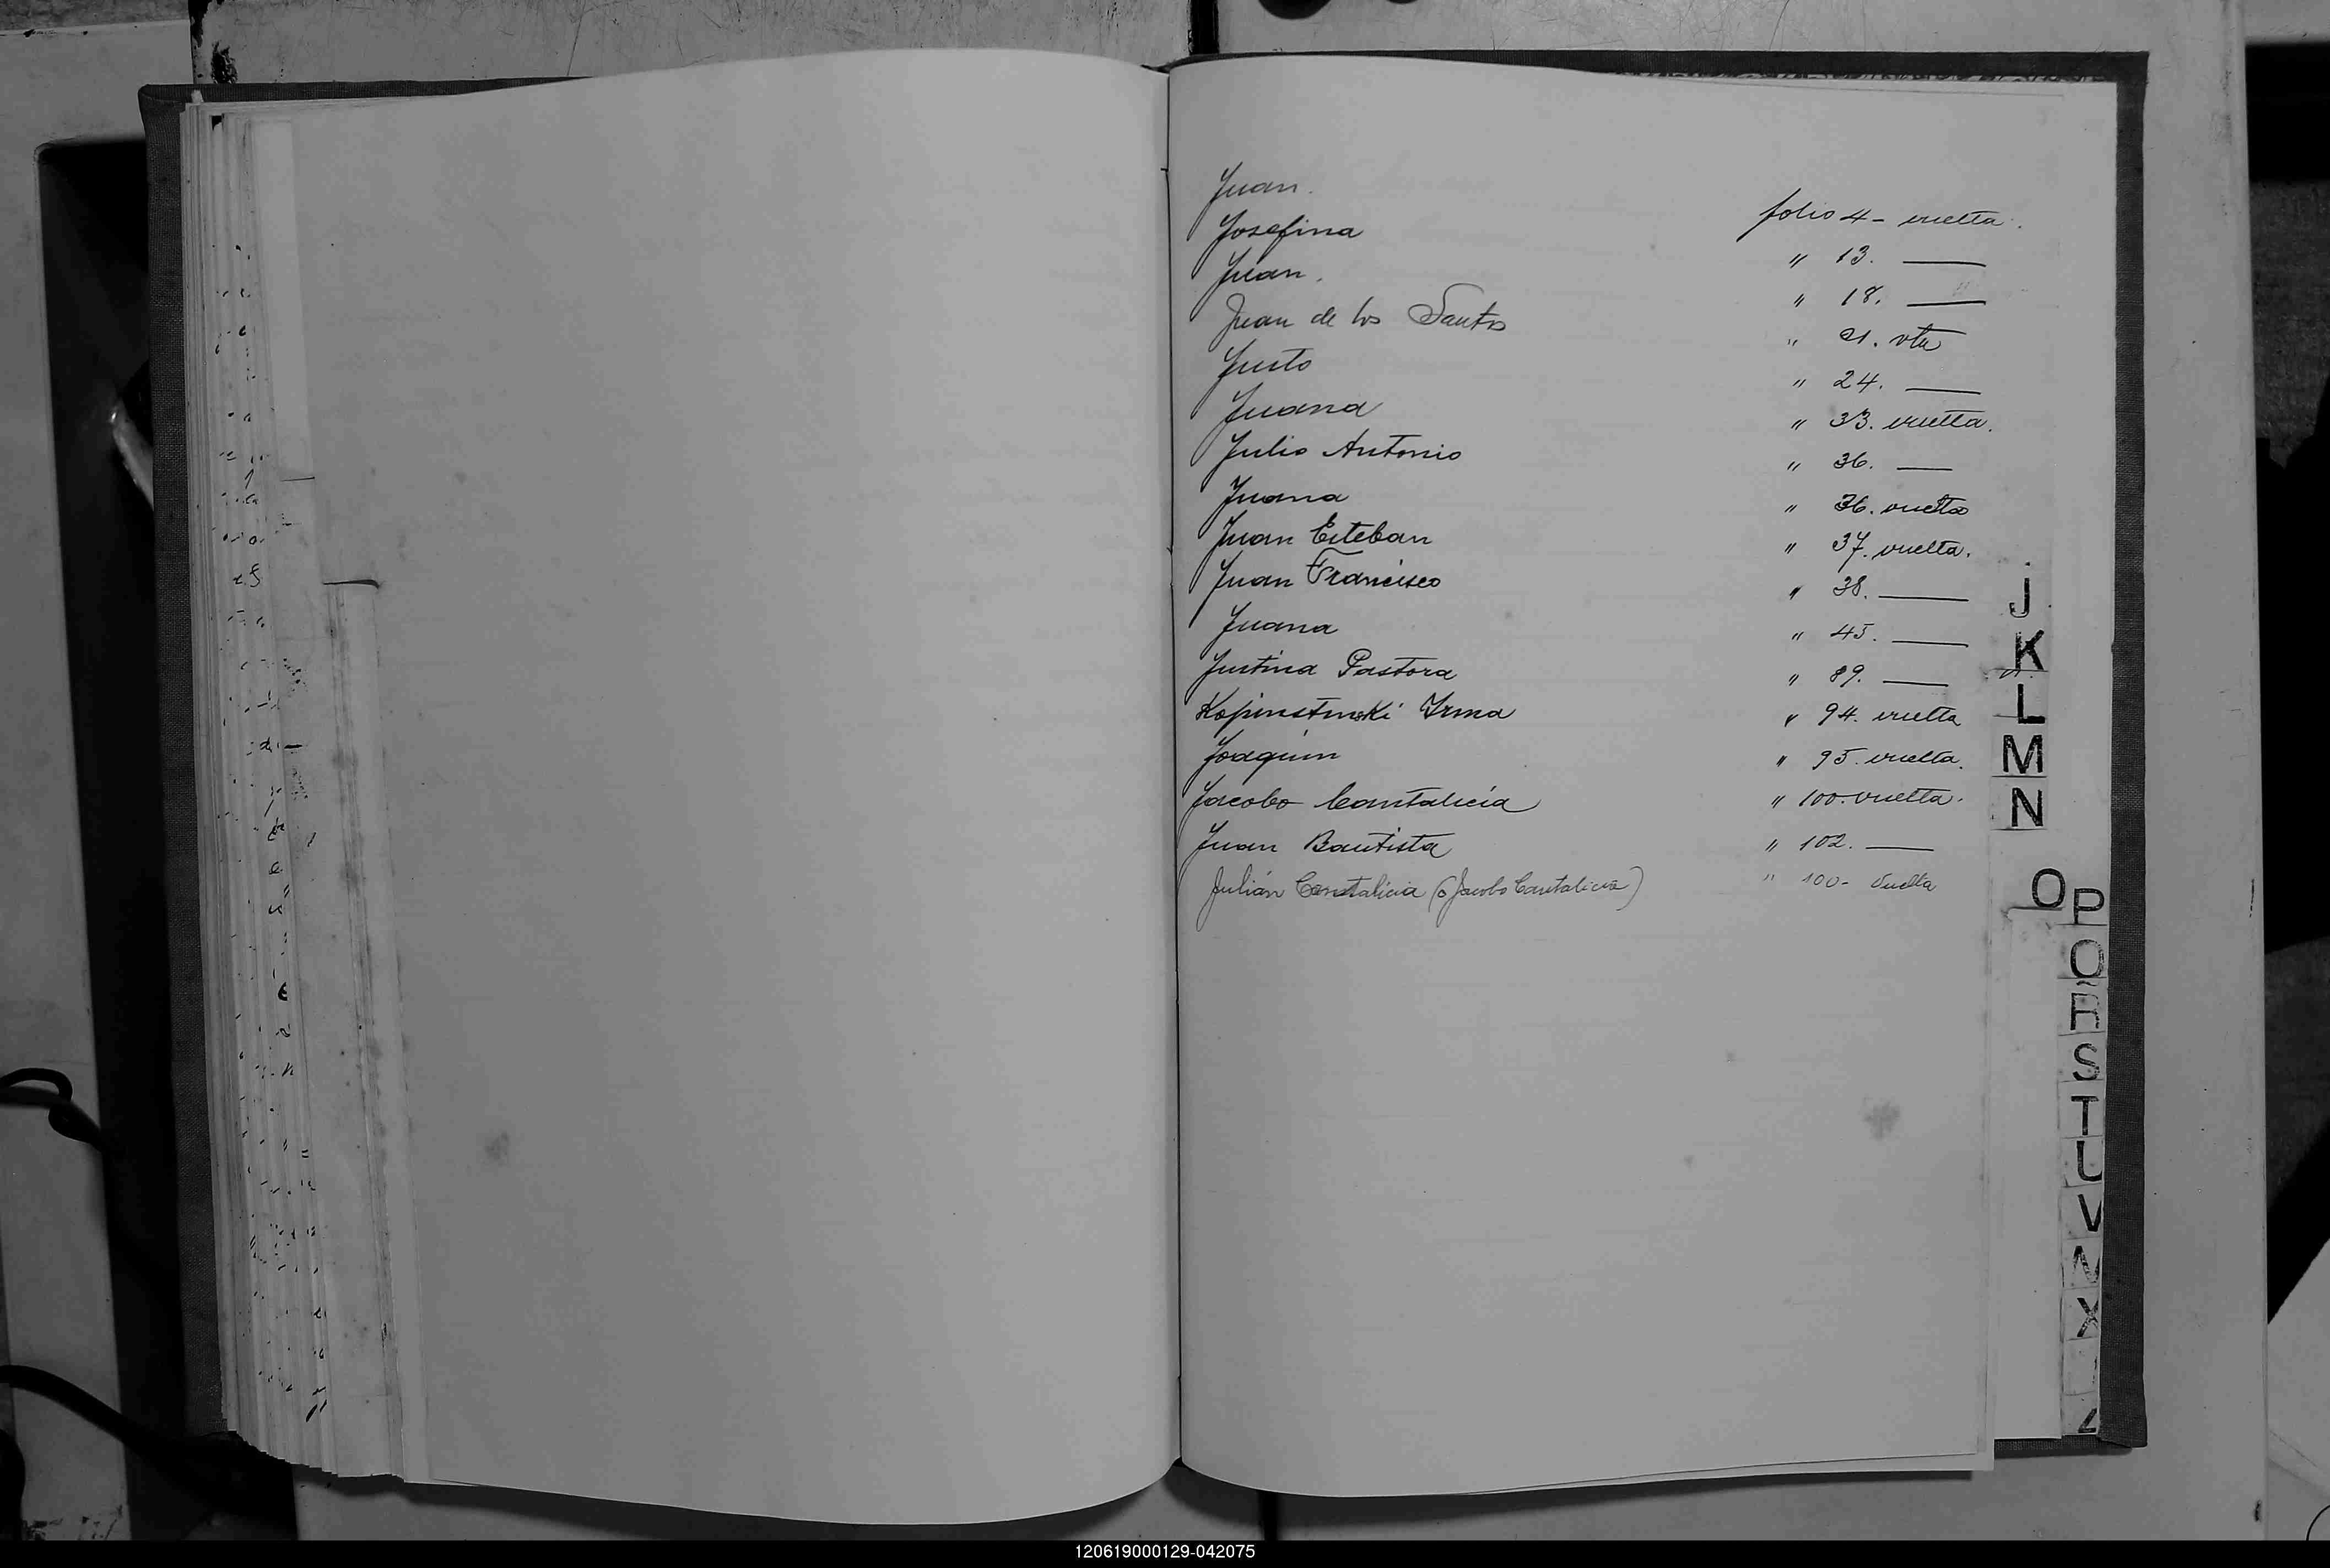 Juan. folio 4- vuelta.
Josefina " 13. —
Juan. " 18. —
Juan de los Santos " 21. vta
Justo " 24. —
Juana " 33. vuelta.
Julio Antonio " 36. —
Juana " 36. vuelta
Juan Esteban " 37. vuelta.
Juan Francisco " 38. —
Juana " 45. —
Justina Pastora " 89. —
Irma " 94. vuelta
Joaquin " 95. vuelta.
Jacobo Cantalicia " 100. vuelta.
Juan Bautista " 102. —
Julián Cantalicia (o Jacobo Cantalicia) " 100- vuelta
J
K
L
M
N
O
P
Q
R
S
T
U
V
X
Z
120619000129-042075